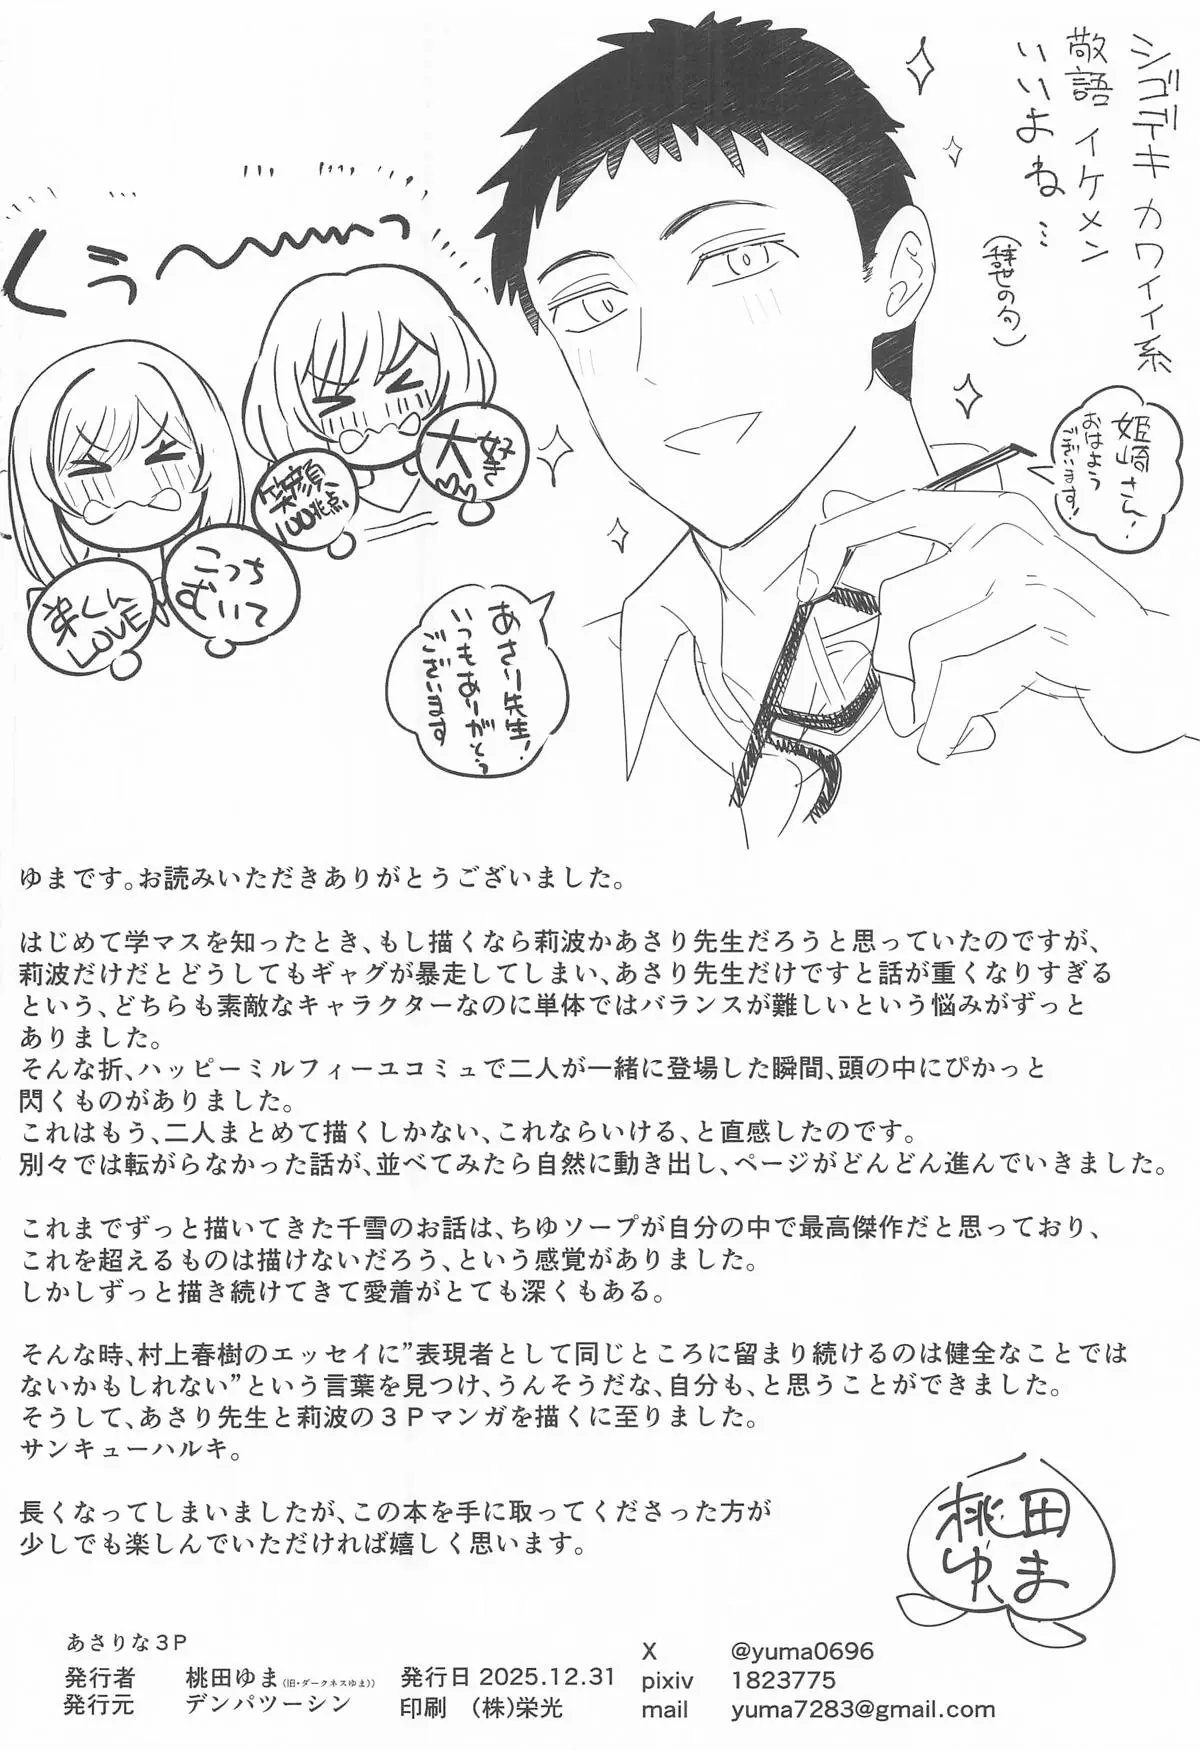 シゴデキカワイイ系
敬語イケメン
いいよね…
(辞世の句)
姫崎さん!
おはよう
ございます!
くぅ〜〜〜っ
大好き
笑顔
100兆点
こっち
むいて
弟くん
LOVE
あさり先生!
いつもありがとう
ございます
ゆまです。お読みいただきありがとうございました。
はじめて学マスを知ったとき、もし描くなら莉波かあさり先生だろうと思っていたのですが、
莉波だけだとどうしてもギャグが暴走してしまい、あさり先生だけですと話が重くなりすぎる
という、どちらも素敵なキャラクターなのに単体ではバランスが難しいという悩みがずっと
ありました。
そんな折、ハッピーミルフィーユコミュで二人が一緒に登場した瞬間、頭の中にぴかっと
閃くものがありました。
これはもう、二人まとめて描くしかない、これならいける、と直感したのです。
別々では転がらなかった話が、並べてみたら自然に動き出し、ページがどんどん進んでいきました。
これまでずっと描いてきた千雪のお話は、ちゆソープが自分の中で最高傑作だと思っており、
これを超えるものは描けないだろう、という感覚がありました。
しかしずっと描き続けてきて愛着がとても深くもある。
そんな時、村上春樹のエッセイに”表現者として同じところに留まり続けるのは健全なことでは
ないかもしれない”という言葉を見つけ、うんそうだな、自分も、と思うことができました。
そうして、あさり先生と莉波の３Ｐマンガを描くに至りました。
サンキューハルキ。
長くなってしまいましたが、この本を手に取ってくださった方が
少しでも楽しんでいただければ嬉しく思います。
桃田
ゆま
あさりな３Ｐ
発行者 桃田ゆま(旧・ダークネスゆま)) 発行日 2025.12.31
発行元 デンパツーシン 印刷 (株)栄光
X @yuma0696
pixiv 1823775
mail yuma7283@gmail.com